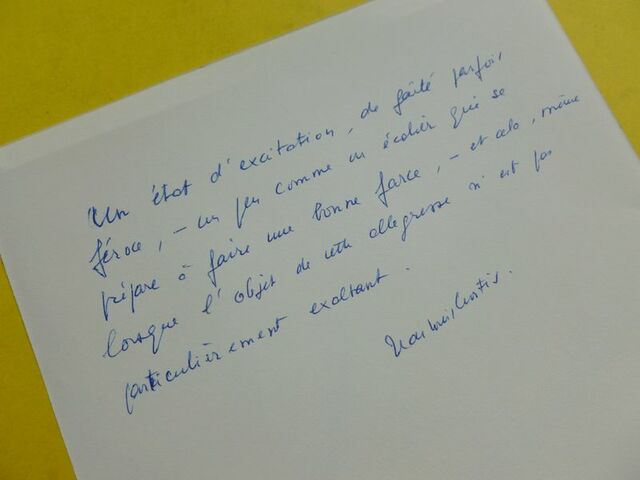 Un état d'excitation, de gaîté parfois
féroce, – un peu comme un écolier qui se
prépare à faire une bonne farce, – et cela, même
lorsque l'objet de cette allegresse n'est pas
particulièrement exaltant.
Jean-Louis Curtis.